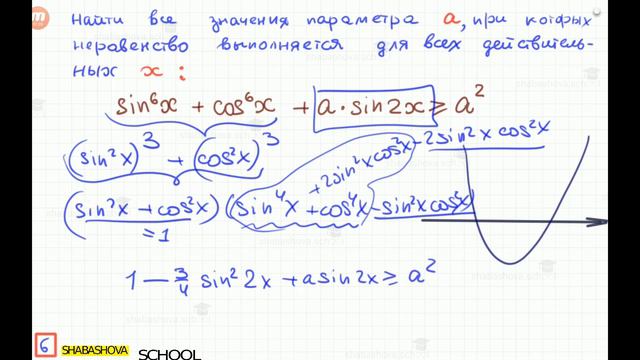 Найти все значения параметра a, при котрых
неравенство выполняется для всех действитель-
ных x:
sin⁶x + cos⁶x + a·sin2x ≥ a²
(sin²x)³ + (cos²x)³
+2sin²x cos²x - 2sin²x cos²x
(sin²x + cos²x)(sin⁴x + cos⁴x - sin²x cos²x)
=1
1 - 3/4 sin²2x + a sin2x ≥ a²
6 SHABASHOVA SCHOOL